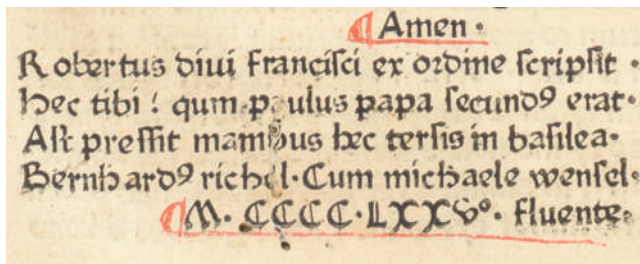 ¶ Amen.
Robertus diui francisci ex ordine scripsit.
hec tibi: qum paulus papa secundꝰ erat.
Ast pressit manibus hec tersis in basilea.
Bernhardꝰ richel. Cum michaele wensel.
¶ M. CCCC. LXXVº. fluente.